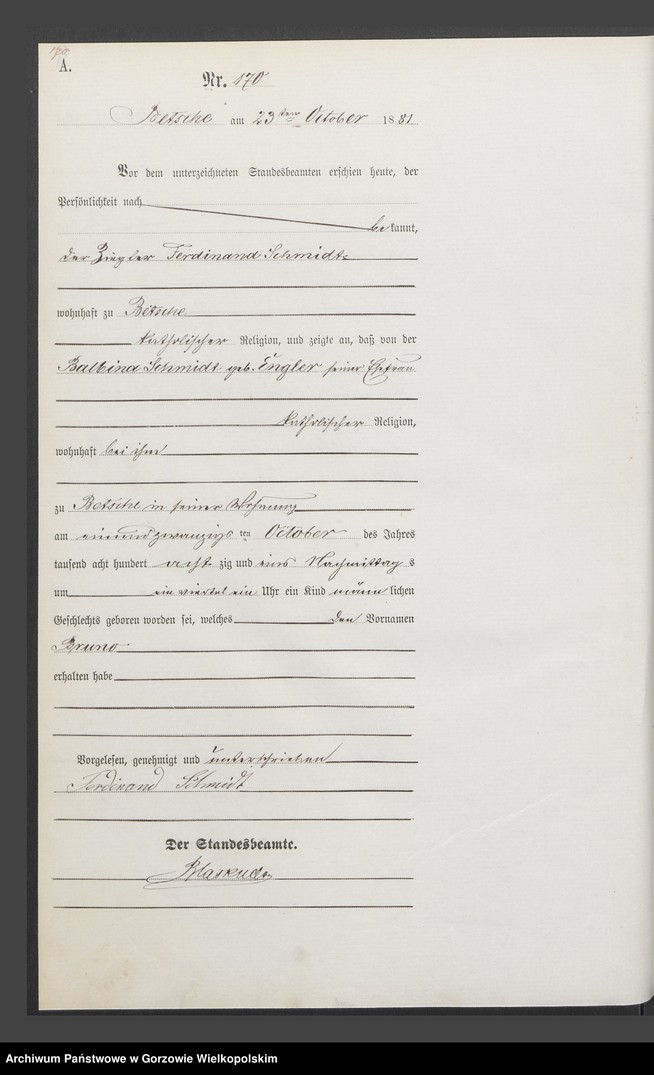 A.
Nr. 170
Betsche am 23ten October 1881
Vor dem unterzeichneten Standesbeamten erschien heute, der
Persönlichkeit nach
be kannt,
der Ziegler Ferdinand Schmidt
wohnhaft zu Betsche
katholischer Religion, und zeigte an, daß von der
Balbina Schmidt geb. Engler seiner Ehefrau
katholischer Religion,
wohnhaft bei ihm
zu Betsche in seiner Wohnung
am einundzwanzigsten October des Jahres
tausend acht hundert acht zig und eins Nachmittags
um ein viertel ein Uhr ein Kind männlichen
Geschlechts geboren worden sei, welches den Vornamen
Bruno
erhalten habe
Vorgelesen, genehmigt und unterschrieben
Ferdinand Schmidt
Der Standesbeamte.
Archiwum Państwowe w Gorzowie Wielkopolskim